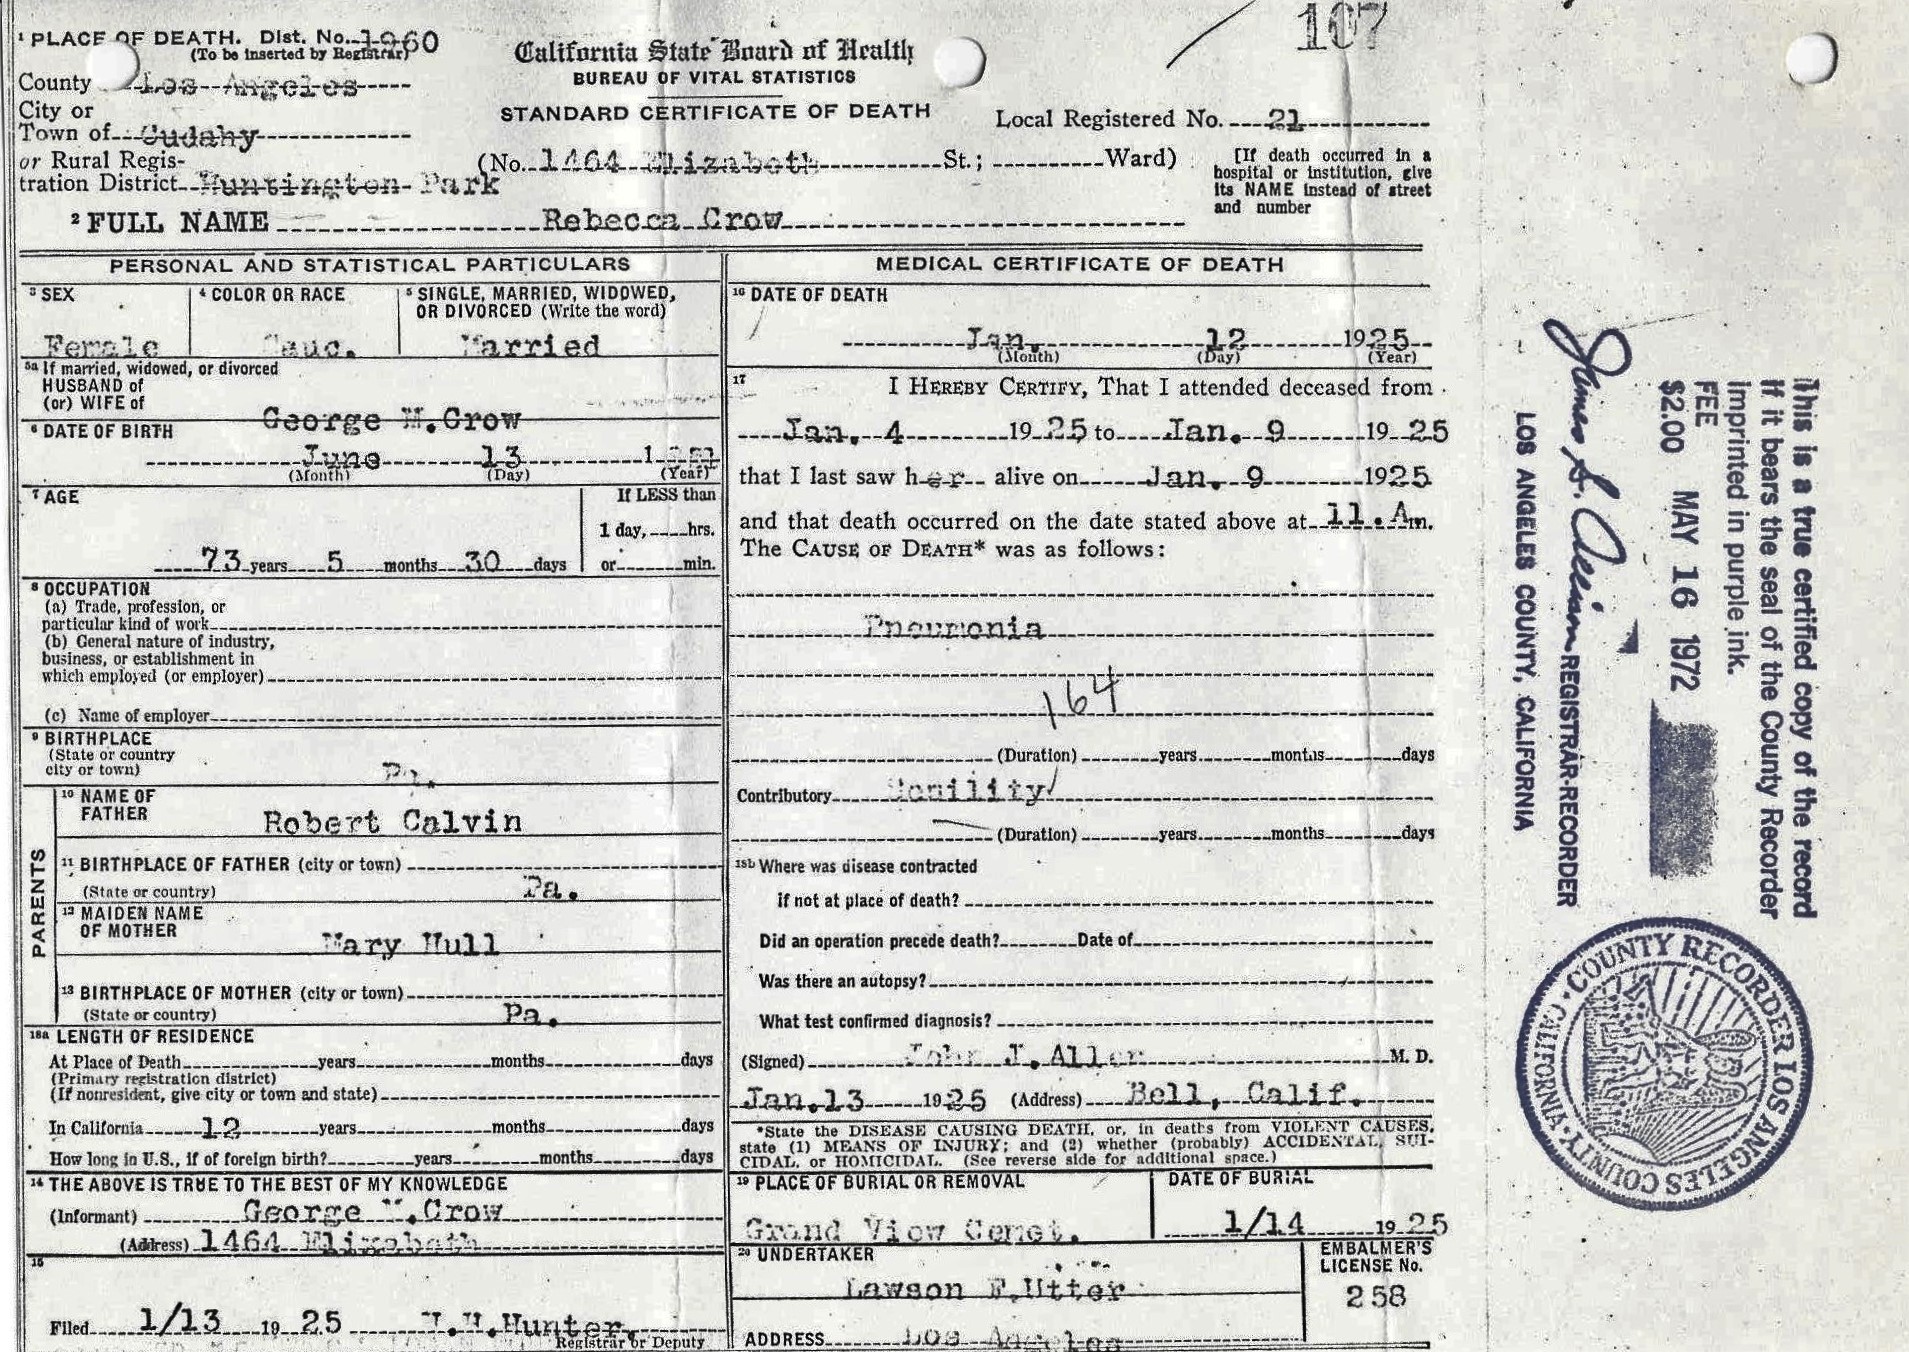 107
1 PLACE OF DEATH. Dist. No. 1960
(To be inserted by Registrar)
County Los Angeles
City or
Town of Cudahy
or Rural Regis-
tration District Huntington Park
California State Board of Health
BUREAU OF VITAL STATISTICS
STANDARD CERTIFICATE OF DEATH
Local Registered No. 21
(No. 1464 Elizabeth St.; Ward)
[If death occurred in a
hospital or institution, give
its NAME instead of street
and number
2 FULL NAME Rebecca Crow
PERSONAL AND STATISTICAL PARTICULARS
3 SEX
Female
4 COLOR OR RACE
Cauc.
5 SINGLE, MARRIED, WIDOWED,
OR DIVORCED (Write the word)
Married
5a If married, widowed, or divorced
HUSBAND of
(or) WIFE of
George M. Crow
6 DATE OF BIRTH
June 13 1
(Month) (Day) (Year)
7 AGE
73 years 5 months 30 days
If LESS than
1 day, hrs.
or min.
8 OCCUPATION
(a) Trade, profession, or
particular kind of work
(b) General nature of industry,
business, or establishment in
which employed (or employer)
(c) Name of employer
9 BIRTHPLACE
(State or country
city or town)
Pa.
PARENTS
10 NAME OF
FATHER
Robert Calvin
11 BIRTHPLACE OF FATHER (city or town)
(State or country) Pa.
12 MAIDEN NAME
OF MOTHER
Mary Hull
13 BIRTHPLACE OF MOTHER (city or town)
(State or country) Pa.
18a LENGTH OF RESIDENCE
At Place of Death years months days
(Primary registration district)
(If nonresident, give city or town and state)
In California 12 years months days
How long in U.S., if of foreign birth? years months days
14 THE ABOVE IS TRUE TO THE BEST OF MY KNOWLEDGE
(Informant) George M. Crow
(Address) 1464 Elizabeth
15
Filed 1/13 1925 Hunter.
Registrar or Deputy
MEDICAL CERTIFICATE OF DEATH
16 DATE OF DEATH
Jan. 12 1925
(Month) (Day) (Year)
17 I HEREBY CERTIFY, That I attended deceased from
Jan. 4 1925 to Jan. 9 1925
that I last saw her alive on Jan. 9 1925
and that death occurred on the date stated above at 11.Am.
The CAUSE OF DEATH* was as follows:
Pneumonia
164
(Duration) years months days
Contributory Senility
(Duration) years months days
18b Where was disease contracted
if not at place of death?
Did an operation precede death? Date of
Was there an autopsy?
What test confirmed diagnosis?
(Signed) John J. Aller M. D.
Jan.13 1925 (Address) Bell, Calif.
*State the DISEASE CAUSING DEATH, or, in deaths from VIOLENT CAUSES,
state (1) MEANS OF INJURY; and (2) whether (probably) ACCIDENTAL, SUI-
CIDAL, or HOMICIDAL. (See reverse side for additional space.)
19 PLACE OF BURIAL OR REMOVAL
Grand View Cemet.
DATE OF BURIAL
1/14 1925
20 UNDERTAKER
Lawson F. Utter
ADDRESS Los Angeles
EMBALMER'S
LICENSE No.
258
This is a true certified copy of the record
if it bears the seal of the County Recorder
imprinted in purple ink.
FEE
$2.00 MAY 16 1972
James S. REGISTRAR-RECORDER
LOS ANGELES COUNTY, CALIFORNIA
COUNTY RECORDER LOS ANGELES COUNTY, CALIFORNIA